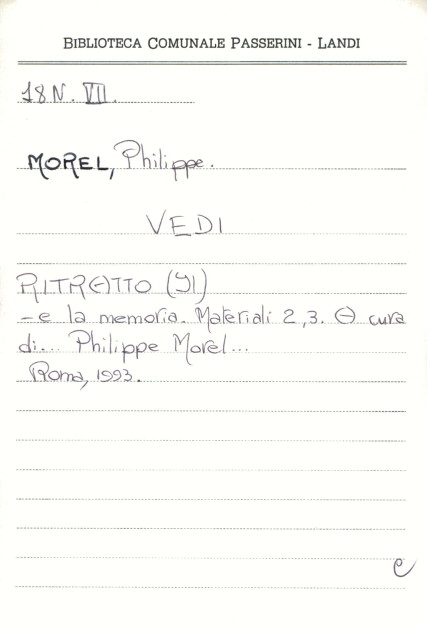 BIBLIOTECA COMUNALE PASSERINI - LANDI
18 N. VII.
MOREL, Philippe.
VEDI
RITRATTO (Il)
- e la memoria. Materiali 2,3. A cura
di... Philippe Morel...
Roma, 1993.
e